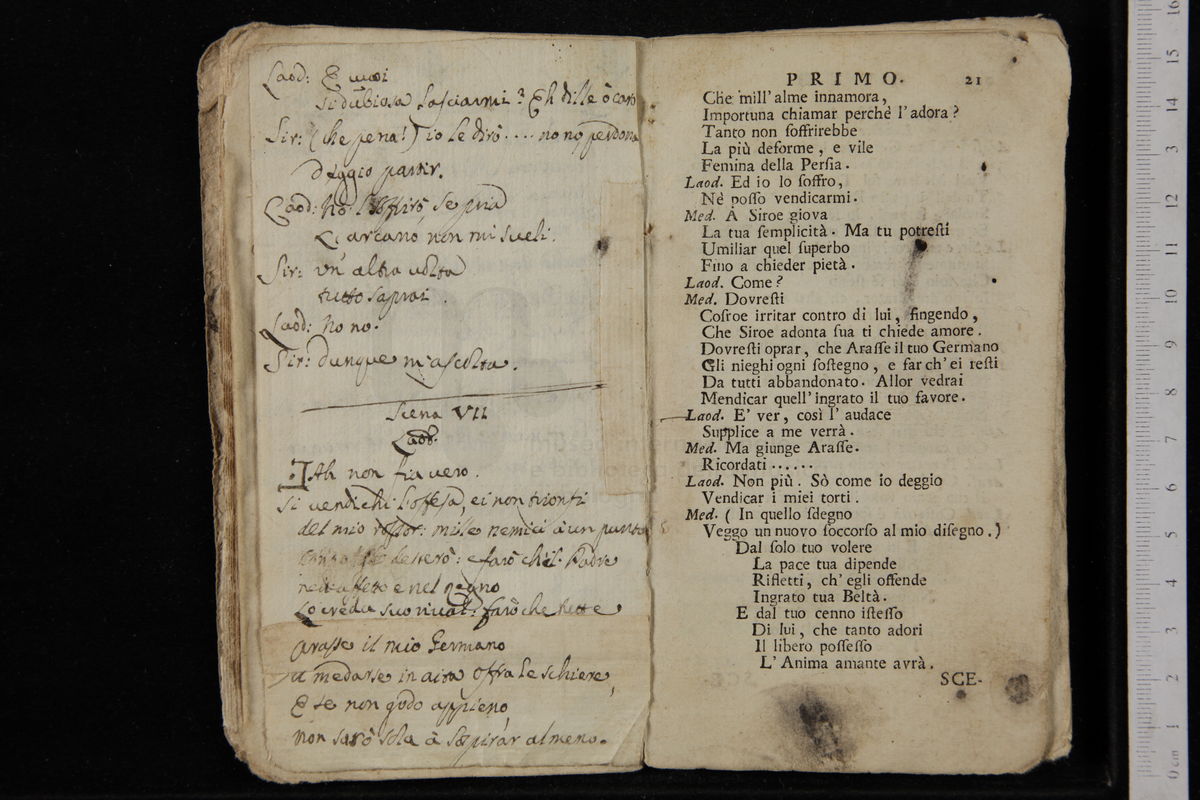 Laod: E vuoi
si dubiosa lasciarmi? Eh dille ò caro
Sir: (che pena!) io le dirò .... no no perdona
deggio partir.
Laod: No: se pria
L'arcano non mi sveli.
Sir: un' altra volta
tutto saprai.
Laod: No no.
Sir: dunque m'ascolta.
Scena VII
Laod.
Ah non fia vero.
Si vendichi l'offesa, ei non trionfi
del mio rossor: mille nemici à un punto
desterò: farò ch'il Padre
affetto e nel Regno
Lo creda suo rival: farò che tutte
Arasse il mio Germano
a Medarse in aita offra le schiere,
E se non godo appieno
non sarò sola à sospirar almeno.
PRIMO. 21
Che mill'alme innamora,
Importuna chiamar perchè l'adora?
Tanto non soffrirebbe
La più deforme, e vile
Femina della Persia.
Laod. Ed io lo soffro,
Nè posso vendicarmi.
Med. A Siroe giova
La tua semplicità. Ma tu potresti
Umiliar quel superbo
Fino a chieder pietà.
Laod. Come?
Med. Dovresti
Cosroe irritar contro di lui, fingendo,
Che Siroe adonta sua ti chiede amore.
Dovresti oprar, che Arasse il tuo Germano
Gli nieghi ogni sostegno, e far ch'ei resti
Da tutti abbandonato. Allor vedrai
Mendicar quell'ingrato il tuo favore.
Laod. E' ver, così l'audace
Supplice a me verrà.
Med. Ma giunge Arasse.
Ricordati ......
Laod. Non più. Sò come io deggio
Vendicar i miei torti.
Med. ( In quello sdegno
Veggo un nuovo soccorso al mio disegno.)
Dal solo tuo volere
La pace tua dipende
Rifletti, ch'egli offende
Ingrato tua Beltà.
E dal tuo cenno istesso
Di lui, che tanto adori
Il libero possesso
L'Anima amante avrà.
SCE-